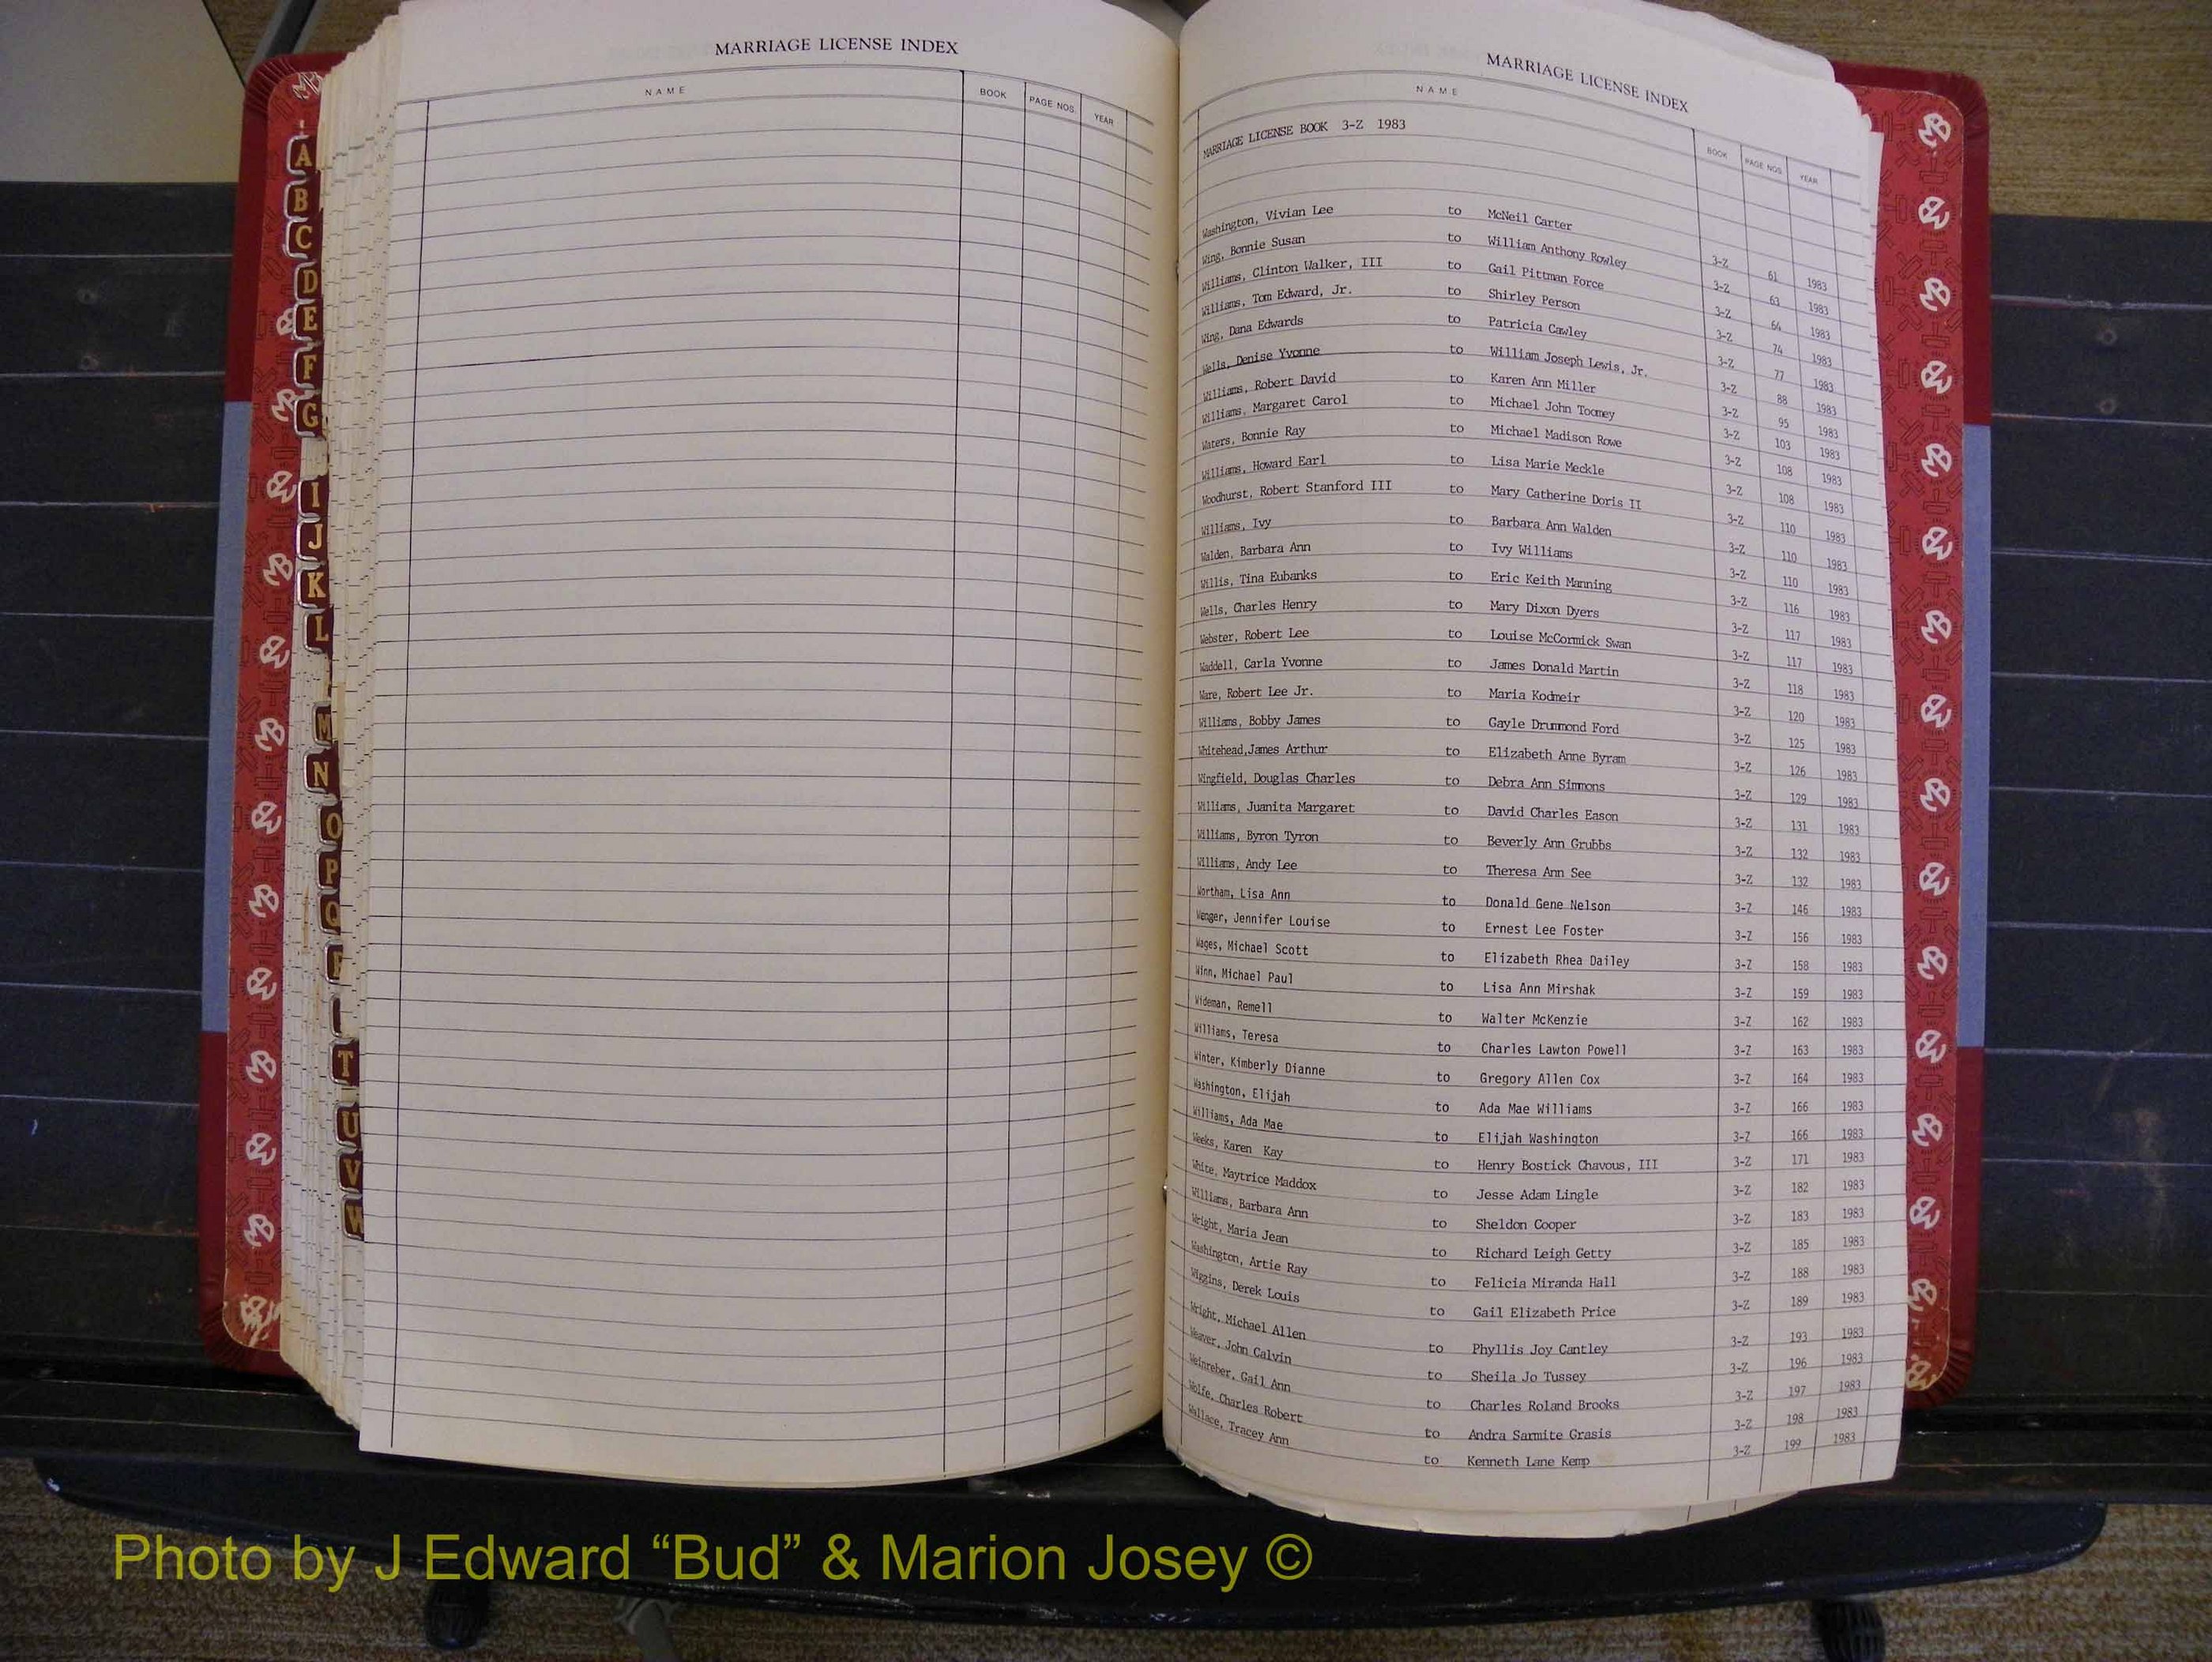 MARRIAGE LICENSE INDEX
NAME BOOK PAGE NOS. YEAR
A
B
C
D
E
F
G
I
J
K
L
M
N
O
P
Q
T
U
V
W
MARRIAGE LICENSE INDEX
NAME BOOK PAGE NOS. YEAR
MARRIAGE LICENSE BOOK 3-Z 1983
Washington, Vivian Lee to McNeil Carter 3-Z 61 1983
Wing, Bonnie Susan to William Anthony Rowley 3-Z 63 1983
Williams, Clinton Walker, III to Gail Pittman Force 3-Z 64 1983
Williams, Tom Edward, Jr. to Shirley Person 3-Z 74 1983
Wing, Dana Edwards to Patricia Cawley 3-Z 77 1983
Wells, Denise Yvonne to William Joseph Lewis, Jr. 3-Z 88 1983
Williams, Robert David to Karen Ann Miller 3-Z 95 1983
Williams, Margaret Carol to Michael John Toomey 3-Z 103 1983
Waters, Bonnie Ray to Michael Madison Rowe 3-Z 108 1983
Williams, Howard Earl to Lisa Marie Meckle 3-Z 108 1983
Woodhurst, Robert Stanford III to Mary Catherine Doris II 3-Z 110 1983
Williams, Ivy to Barbara Ann Walden 3-Z 110 1983
Walden, Barbara Ann to Ivy Williams 3-Z 110 1983
Willis, Tina Eubanks to Eric Keith Manning 3-Z 116 1983
Wells, Charles Henry to Mary Dixon Dyers 3-Z 117 1983
Webster, Robert Lee to Louise McCormick Swan 3-Z 117 1983
Waddell, Carla Yvonne to James Donald Martin 3-Z 118 1983
Ware, Robert Lee Jr. to Maria Kodmeir 3-Z 120 1983
Williams, Bobby James to Gayle Drummond Ford 3-Z 125 1983
Whitehead,James Arthur to Elizabeth Anne Byram 3-Z 126 1983
Wingfield, Douglas Charles to Debra Ann Simmons 3-Z 129 1983
Williams, Juanita Margaret to David Charles Eason 3-Z 131 1983
Williams, Byron Tyron to Beverly Ann Grubbs 3-Z 132 1983
Williams, Andy Lee to Theresa Ann See 3-Z 132 1983
Wortham, Lisa Ann to Donald Gene Nelson 3-Z 146 1983
Wenger, Jennifer Louise to Ernest Lee Foster 3-Z 156 1983
Wages, Michael Scott to Elizabeth Rhea Dailey 3-Z 158 1983
Winn, Michael Paul to Lisa Ann Mirshak 3-Z 159 1983
Wideman, Remell to Walter McKenzie 3-Z 162 1983
Williams, Teresa to Charles Lawton Powell 3-Z 163 1983
Winter, Kimberly Dianne to Gregory Allen Cox 3-Z 164 1983
Washington, Elijah to Ada Mae Williams 3-Z 166 1983
Williams, Ada Mae to Elijah Washington 3-Z 166 1983
Weeks, Karen Kay to Henry Bostick Chavous, III 3-Z 171 1983
White, Maytrice Maddox to Jesse Adam Lingle 3-Z 182 1983
Williams, Barbara Ann to Sheldon Cooper 3-Z 183 1983
Wright, Maria Jean to Richard Leigh Getty 3-Z 185 1983
Washington, Artie Ray to Felicia Miranda Hall 3-Z 188 1983
Wiggins, Derek Louis to Gail Elizabeth Price 3-Z 189 1983
Wright, Michael Allen to Phyllis Joy Cantley 3-Z 193 1983
Weaver, John Calvin to Sheila Jo Tussey 3-Z 196 1983
Weinreber, Gail Ann to Charles Roland Brooks 3-Z 197 1983
Wolfe, Charles Robert to Andra Sarmite Grasis 3-Z 198 1983
Wallace, Tracey Ann to Kenneth Lane Kemp 3-Z 199 1983
Photo by J Edward “Bud” & Marion Josey ©